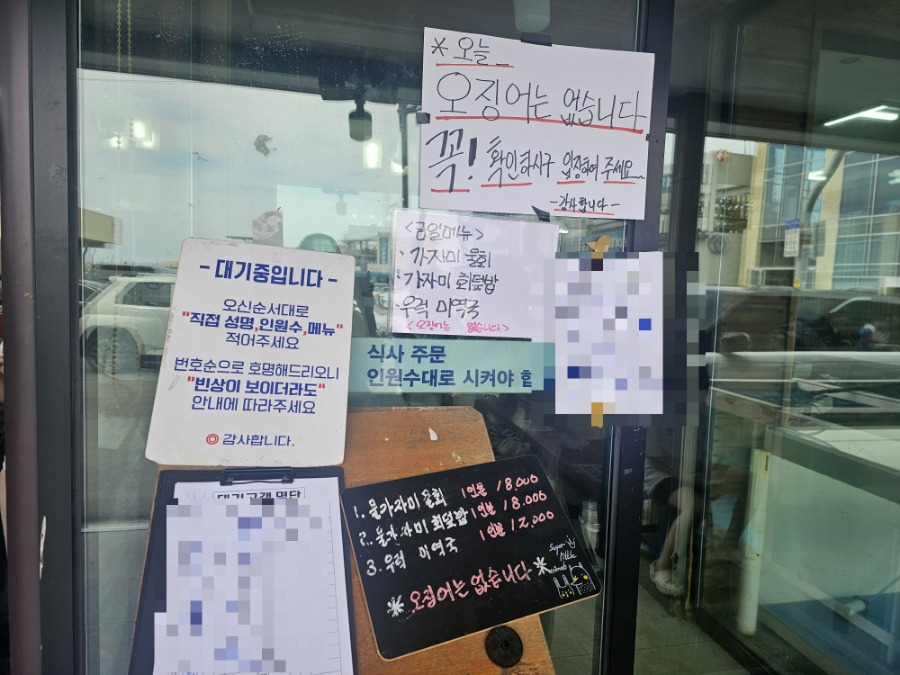 * 오늘
오징어는 없습니다
꼭! 확인하시구 입장하여 주세요~
- 감사합니다 -
<금일메뉴>
· 가자미 물회
· 가자미 회덮밥
· 우럭 미역국
<오징어는 없습니다>
식사 주문
인원수대로 시켜야 합
- 대기중입니다 -
오신순서대로
"직접 성명,인원수,메뉴"
적어주세요
번호순으로 호명해드리오니
"빈상이 보이더라도"
안내에 따라주세요
◎ 감사합니다.
대기고객 명단
1. 물가자미 물회 1인분 18,000
2. 물가자미 회덮밥 1인분 18,000
3. 우럭 미역국 1인분 12,000
* 오징어는 없습니다 *